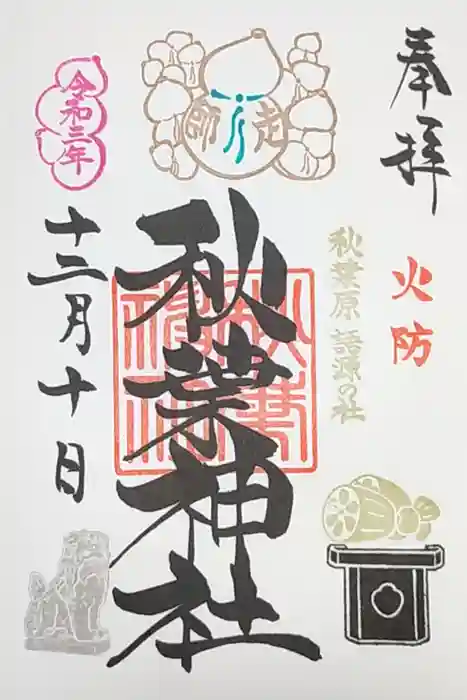 奉拝
火防
秋葉原 語源の社
師走
秋葉神社
令和三年
十二月十日